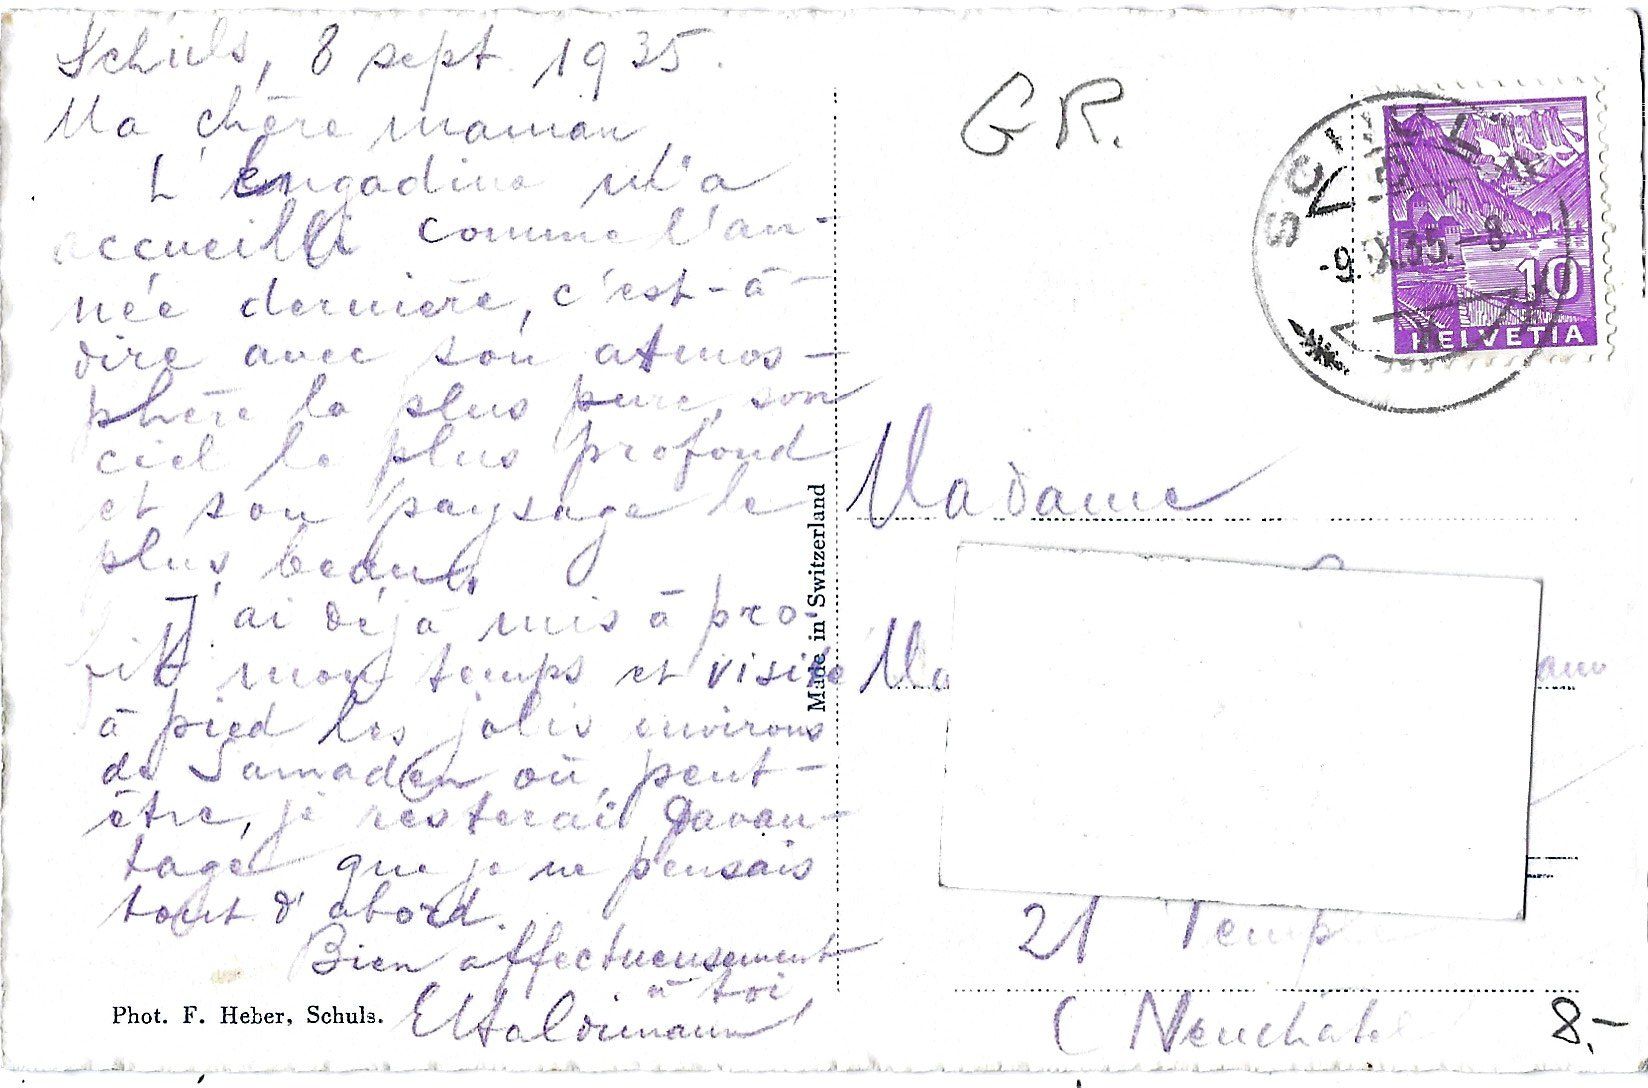 Schuls, 8 sept. 1935.
Ma chère maman,
L'Engadine m'a
accueilli comme l'an-
née dernière, c'est-à-
dire avec son atmos-
phère la plus pure, son
ciel le plus profond
et son paysage le
plus beau.
J'ai déjà mis à pro-
fit mon temps et visité
à pied les jolis environs
de Samaden où, peut-
être, je resterai davan-
tage que je ne pensais
tout d'abord.
Bien affectueusement
à toi,
Phot. F. Heber, Schuls.
Made in Switzerland
GR.
-9.IX.35.-8
10
HELVETIA
Madame
Ma
21 Temple
(Neuchâtel
8.-